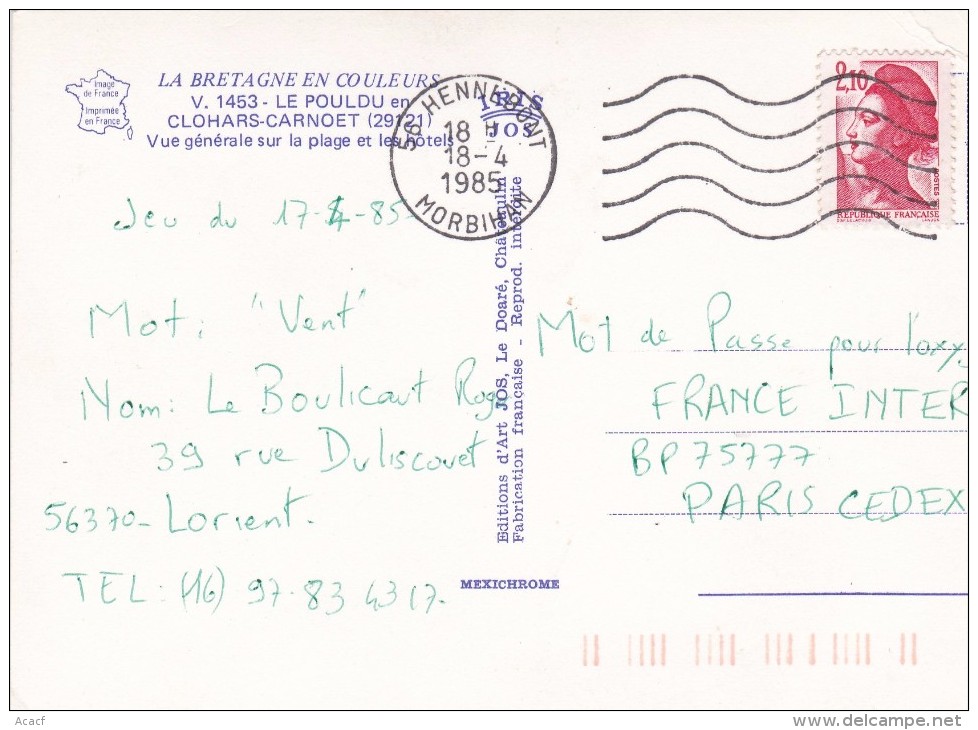 Image
de France
Imprimée
en France
LA BRETAGNE EN COULEURS
V. 1453 - LE POULDU en
CLOHARS-CARNOET (29121)
Vue générale sur la plage et les hôtels
IRIS
JOS
56 HENNEBONT
18 H
18-4
1985
MORBIHAN
2,10
POSTES
RÉPUBLIQUE FRANÇAISE
Jeu du 17-4-85-
Mot: "Vent"
Nom: Le Boulicaut Roge
39 rue Duliscouet
56370- Lorient.
TEL: (16) 97.83 43 17.
Editions d'Art JOS, Le Doaré, Châteaulin
Fabrication française - Reprod. interdite
MEXICHROME
Mot de Passe pour l'oxy
FRANCE INTER
BP 75777
PARIS CEDEX
Acacf
www.delcampe.net